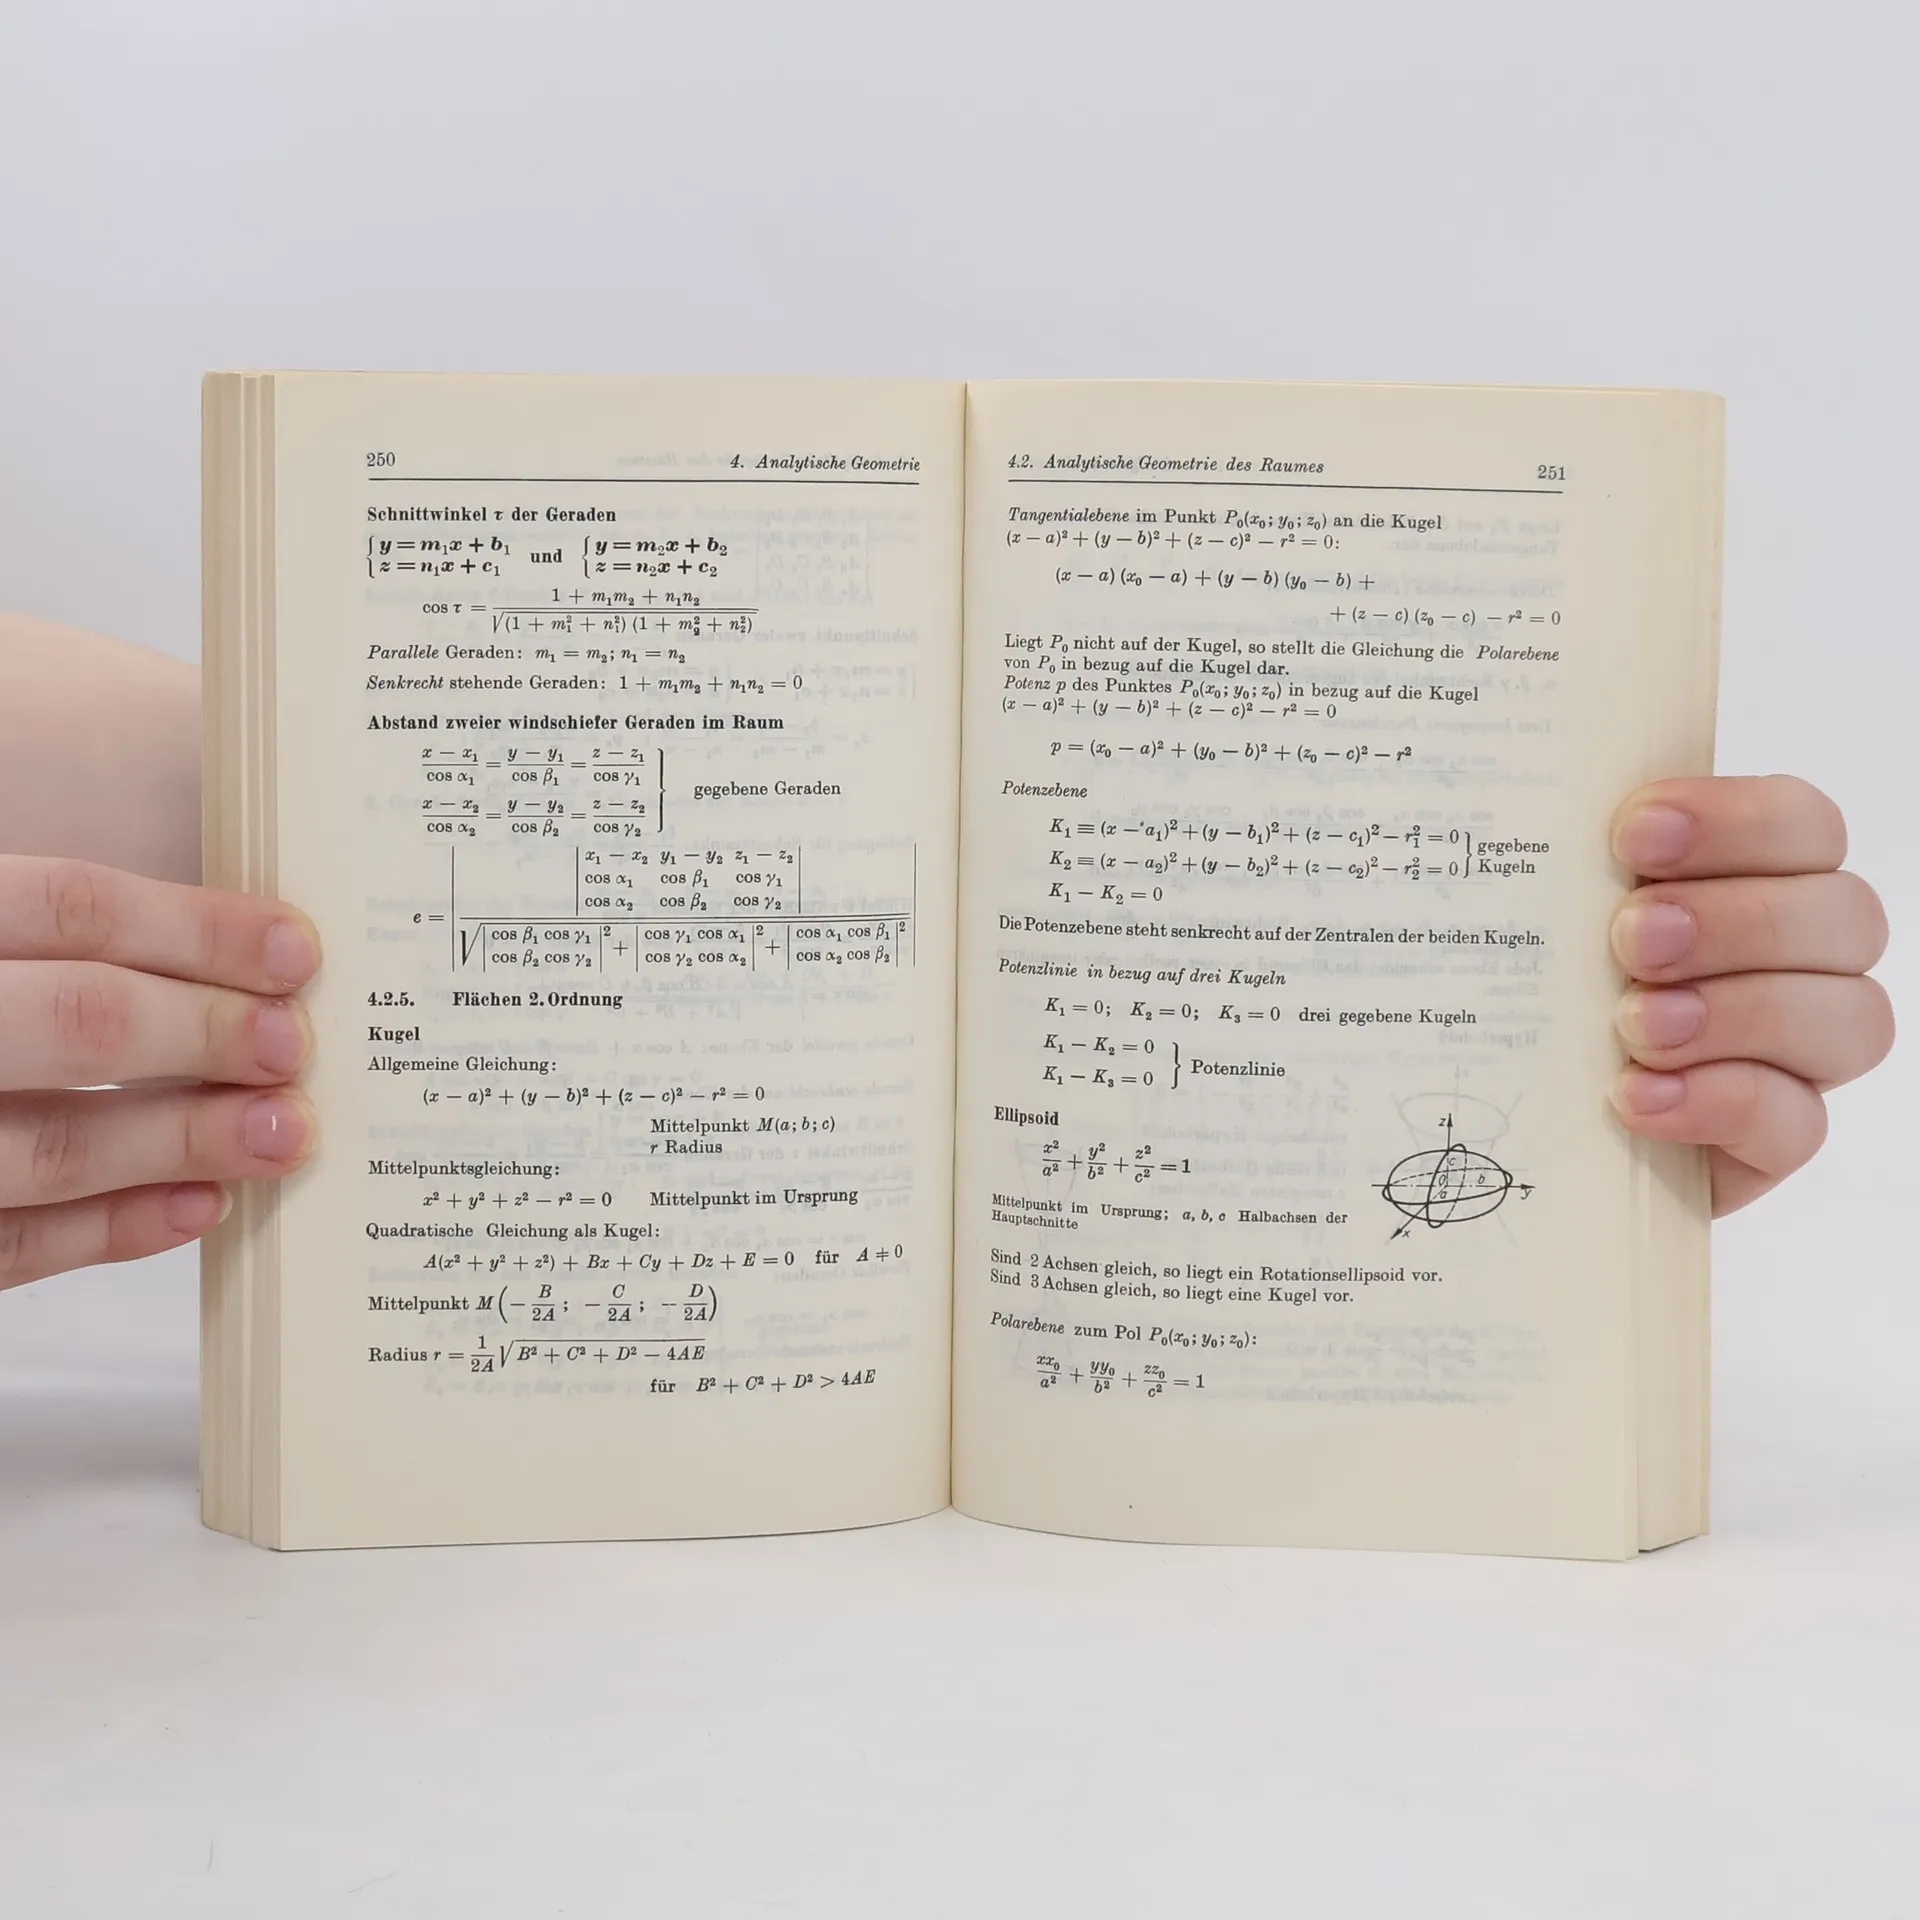 250
4. Analytische Geometrie
Schnittwinkel τ der Geraden
{y = m₁x + b₁ und {y = m₂x + b₂
{z = n₁x + c₁ {z = n₂x + c₂
cos τ = (1 + m₁m₂ + n₁n₂) / √((1 + m₁² + n₁²) (1 + m₂² + n₂²))
Parallele Geraden: m₁ = m₂; n₁ = n₂
Senkrecht stehende Geraden: 1 + m₁m₂ + n₁n₂ = 0
Abstand zweier windschiefer Geraden im Raum
(x − x₁)/(cos α₁) = (y − y₁)/(cos β₁) = (z − z₁)/(cos γ₁)
(x − x₂)/(cos α₂) = (y − y₂)/(cos β₂) = (z − z₂)/(cos γ₂)
} gegebene Geraden
| x₁ − x₂ y₁ − y₂ z₁ − z₂ |
| cos α₁ cos β₁ cos γ₁ |
| cos α₂ cos β₂ cos γ₂ |
e =
√ | cos β₁ cos γ₁ |² + | cos γ₁ cos α₁ |² + | cos α₁ cos β₁ |²
| cos β₂ cos γ₂ | | cos γ₂ cos α₂ | | cos α₂ cos β₂ |
4.2.5. Flächen 2. Ordnung
Kugel
Allgemeine Gleichung:
(x − a)² + (y − b)² + (z − c)² − r² = 0
Mittelpunkt M(a; b; c)
r Radius
Mittelpunktsgleichung:
x² + y² + z² − r² = 0 Mittelpunkt im Ursprung
Quadratische Gleichung als Kugel:
A(x² + y² + z²) + Bx + Cy + Dz + E = 0 für A ≠ 0
Mittelpunkt M (− B/2A; − C/2A; − D/2A)
Radius r = 1/2A √(B² + C² + D² − 4AE)
für B² + C² + D² > 4AE
4.2. Analytische Geometrie des Raumes
251
Tangentialebene im Punkt P₀(x₀; y₀; z₀) an die Kugel
(x − a)² + (y − b)² + (z − c)² − r² = 0:
(x − a) (x₀ − a) + (y − b) (y₀ − b) +
+ (z − c) (z₀ − c) − r² = 0
Liegt P₀ nicht auf der Kugel, so stellt die Gleichung die Polarebene
von P₀ in bezug auf die Kugel dar.
Potenz p des Punktes P₀(x₀; y₀; z₀) in bezug auf die Kugel
(x − a)² + (y − b)² + (z − c)² − r² = 0
p = (x₀ − a)² + (y₀ − b)² + (z₀ − c)² − r²
Potenzebene
K₁ ≡ (x − a₁)² + (y − b₁)² + (z − c₁)² − r₁² = 0 } gegebene
K₂ ≡ (x − a₂)² + (y − b₂)² + (z − c₂)² − r₂² = 0 } Kugeln
K₁ − K₂ = 0
Die Potenzebene steht senkrecht auf der Zentralen der beiden Kugeln.
Potenzlinie in bezug auf drei Kugeln
K₁ = 0; K₂ = 0; K₃ = 0 drei gegebene Kugeln
K₁ − K₂ = 0
K₁ − K₃ = 0 } Potenzlinie
Ellipsoid
x²/a² + y²/b² + z²/c² = 1
Mittelpunkt im Ursprung; a, b, c Halbachsen der
Hauptschnitte
z
c
0
b
a
y
x
Sind 2 Achsen gleich, so liegt ein Rotationsellipsoid vor.
Sind 3 Achsen gleich, so liegt eine Kugel vor.
Polarebene zum Pol P₀(x₀; y₀; z₀):
xx₀/a² + yy₀/b² + zz₀/c² = 1